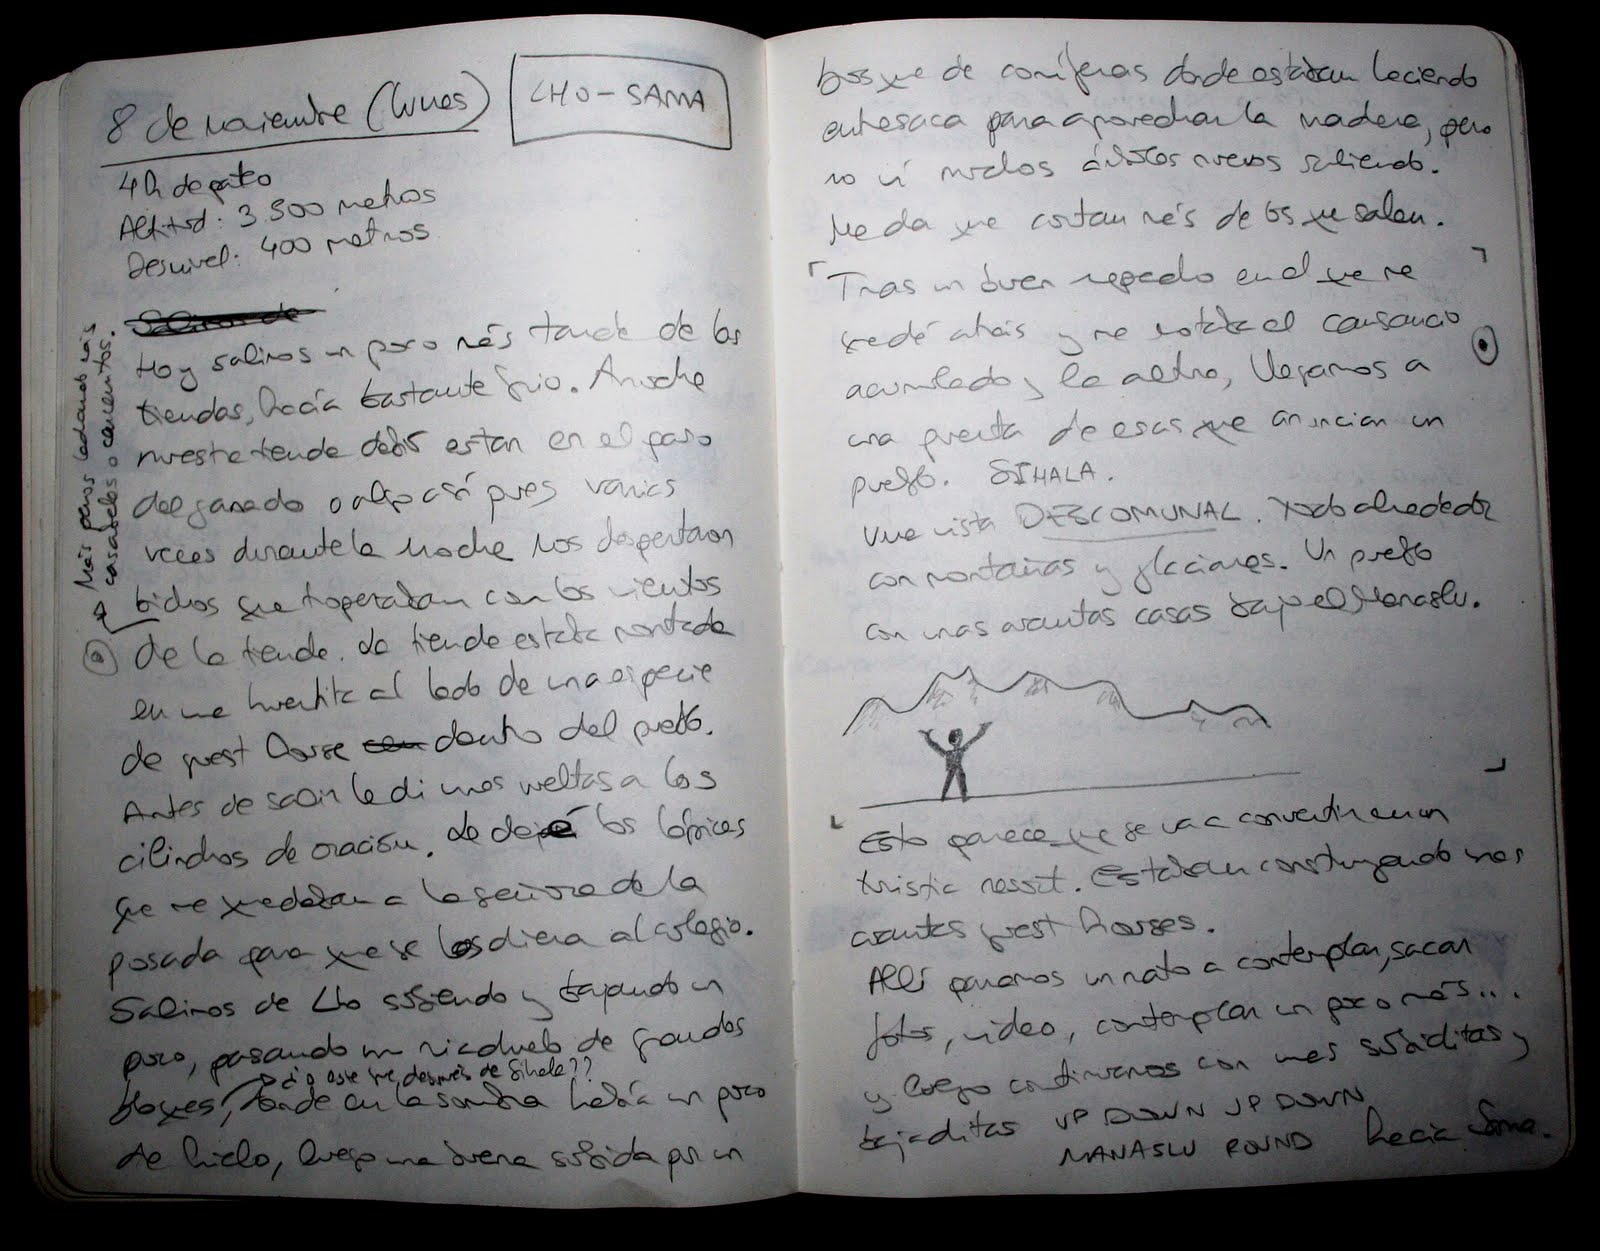 8 de noviembre (lunes)
LHO - SAMA
4h de pateo
Altitud: 3.500 metros
Desnivel: 400 metros
Hoy salimos un poco más tarde de las
tiendas, hacía bastante frio. Anoche
nuestra tienda debió estar en el paso
del ganado o algo así pues varias
veces durante la noche nos despertaron
bichos que tropezaban con los vientos
de la tienda. La tienda estaba montada
en una huertita al lado de una especie
de guest house dentro del pueblo.
Antes de salir le di unas vueltas a los
cilindros de oración. Le dejé los lápices
que me quedaban a la señora de la
posada para que se los diera al colegio.
Salimos de Lho subiendo y bajando un
poco, pasando un riachuelo de grandes
¿o ese fue después de Sihala??
bloques, donde en la sombra había un poco
de hielo, luego una buena subida por un
Más perros ladrando más
cascabeles o cencerros.
bosque de coníferas donde estaban haciendo
entresaca para aprovechar la madera, pero
no vi muchos árboles nuevos saliendo.
Me da que cortan más de los que salen.
Tras un buen repecho en el que me
quedé atrás y me notaba el cansancio
acumulado y la altura, llegamos a
una puerta de esas que anuncian un
pueblo. SIHALA.
Una vista DESCOMUNAL. Todo alrededor
con montañas y glaciares. Un pueblo
con unas cuantas casas bajo el Manaslu.
Esto parece que se va a convertir en un
turistic resort. Estaban construyendo unas
cuantas guest houses.
Allí paramos un rato a contemplar, sacar
fotos, video, contemplar un poco más...
y luego continuamos con unas subiditas y
bajaditas UP DOWN UP DOWN
MANASLU ROUND hacia Sama.